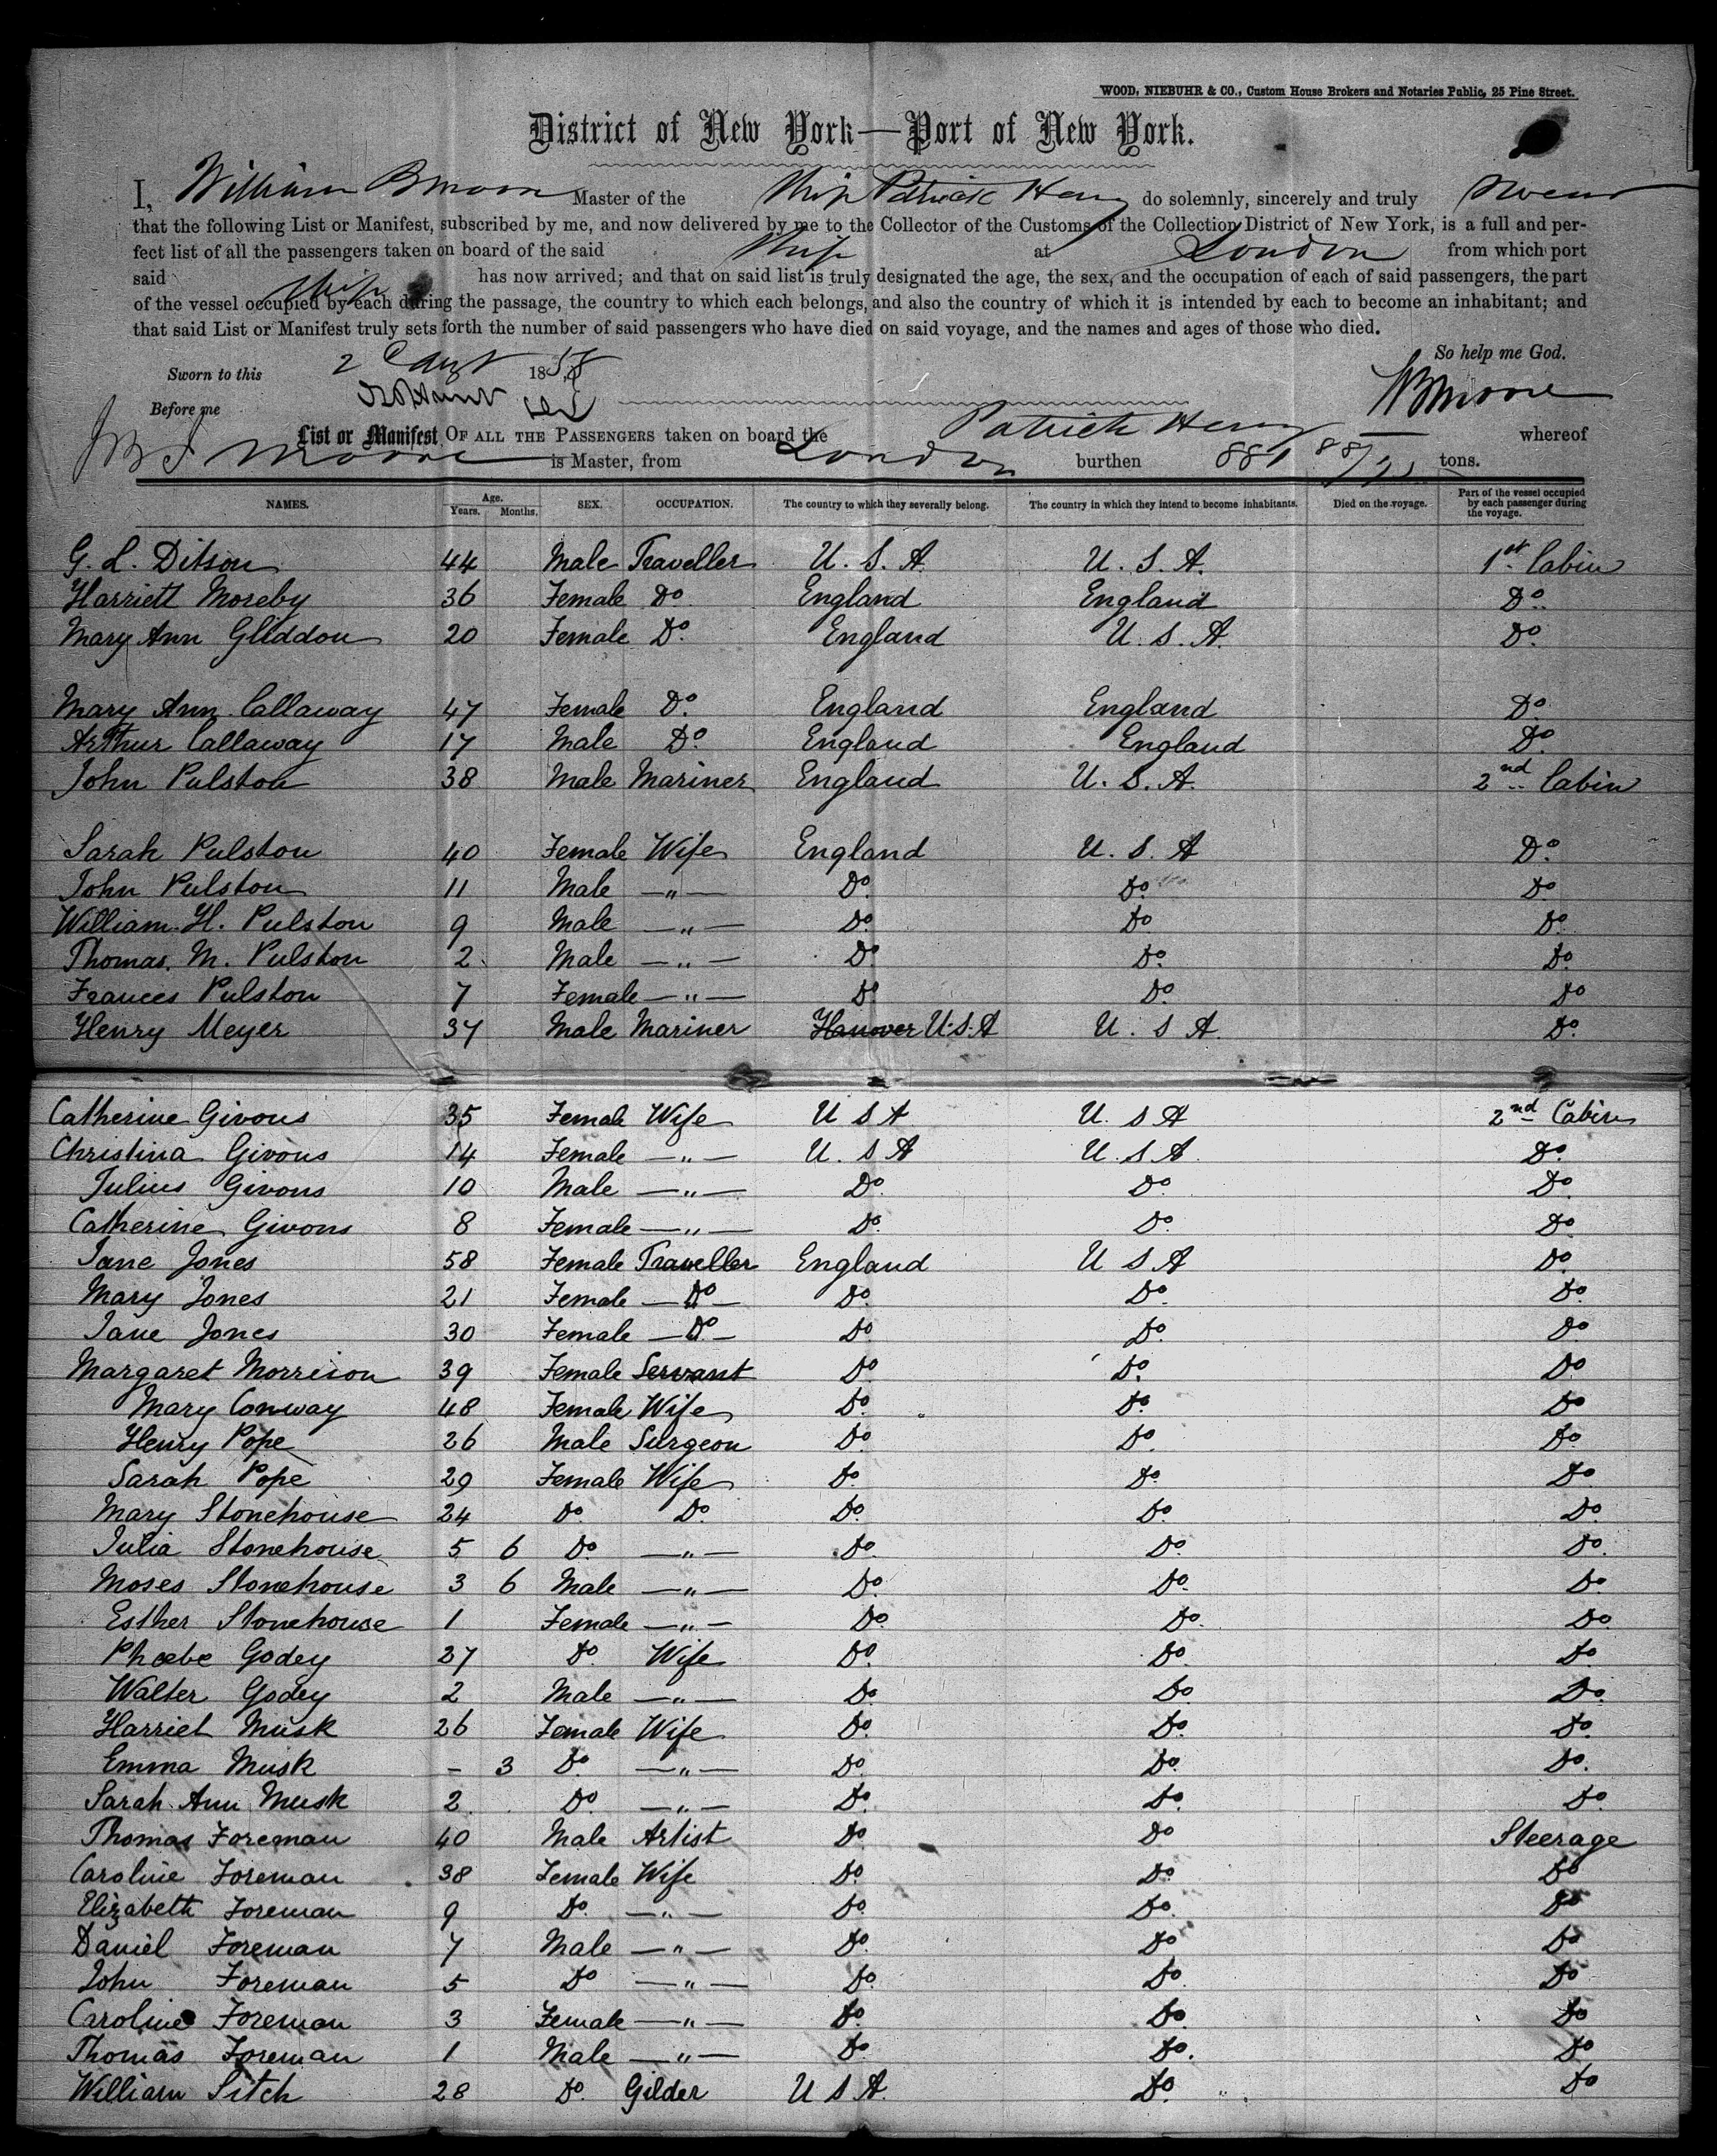 WOOD, NIEBUHR & CO., Custom House Brokers and Notaries Public, 25 Pine Street.
District of New York—Port of New York.
I, William B Moore Master of the Ship Patrick Henry do solemnly, sincerely and truly swear
that the following List or Manifest, subscribed by me, and now delivered by me to the Collector of the Customs of the Collection District of New York, is a full and per-
fect list of all the passengers taken on board of the said Ship at London from which port
said Ship has now arrived; and that on said list is truly designated the age, the sex, and the occupation of each of said passengers, the part
of the vessel occupied by each during the passage, the country to which each belongs, and also the country of which it is intended by each to become an inhabitant; and
that said List or Manifest truly sets forth the number of said passengers who have died on said voyage, and the names and ages of those who died.
So help me God.
Sworn to this 2 Augt 1858
Before me
W B Moore
List or Manifest OF ALL THE PASSENGERS taken on board the Patrick Henry whereof
Moore is Master, from London burthen 881 88/95 tons.
NAMES. Age. Years. Months. SEX. OCCUPATION. The country to which they severally belong. The country in which they intend to become inhabitants. Died on the voyage. Part of the vessel occupied by each passenger during the voyage.
G. L. Ditson 44 Male Traveller U. S. A. U. S. A. 1st Cabin
Harriett Moreby 36 Female Do. England England Do.
Mary Ann Gliddon 20 Female Do. England U. S. A. Do.
Mary Ann Callaway 47 Female Do. England England Do.
Arthur Callaway 17 Male Do. England England Do.
John Pulston 38 Male Mariner England U. S. A. 2nd Cabin
Sarah Pulston 40 Female Wife England U. S. A Do.
John Pulston 11 Male —"— Do. Do. Do.
William H. Pulston 9 Male —"— Do. Do. Do.
Thomas M. Pulston 2 Male —"— Do. Do. Do.
Frances Pulston 7 Female —"— Do. Do. Do
Henry Meyer 37 Male Mariner Hanover U.S.A U. S A. Do.
Catherine Givons 35 Female Wife U S A U. S A 2nd Cabin
Christina Givons 14 Female —"— U. S A U. S A. Do.
Julius Givons 10 Male —"— Do. Do. Do.
Catherine Givons 8 Female —"— Do. Do. Do.
Jane Jones 58 Female Traveller England U S A Do.
Mary Jones 21 Female —Do— Do. Do. Do.
Jane Jones 30 Female —Do.— Do. Do. Do
Margaret Morrison 39 Female Servant Do. Do. Do
Mary Conway 48 Female Wife Do. Do. Do
Henry Pope 26 Male Surgeon Do. Do. Do
Sarah Pope 29 Female Wife Do. Do. Do
Mary Stonehouse 24 Do. Do. Do. Do. Do.
Julia Stonehouse 5 6 Do. —"— Do. Do. Do.
Moses Stonehouse 3 6 Male —"— Do. Do. Do.
Esther Stonehouse 1 Female —"— Do. Do. Do.
Phoebe Godey 27 Do. Wife Do. Do. Do.
Walter Godey 2 Male —"— Do. Do. Do.
Harriet Musk 26 Female Wife Do. Do. Do.
Emma Musk – 3 Do. —"— Do. Do. Do.
Sarah Ann Musk 2 Do. —"— Do. Do. Do.
Thomas Foreman 40 Male Artist Do. Do Steerage
Caroline Foreman 38 Female Wife Do. Do. Do
Elizabeth Foreman 9 Do. —"— Do. Do. Do
Daniel Foreman 7 Male —"— Do. Do Do
John Foreman 5 Do —"— Do. Do. Do
Caroline Foreman 3 Female —"— Do. Do. Do
Thomas Foreman 1 Male —"— Do. Do. Do
William Sitch 28 Do. Gilder U S A. Do. Do